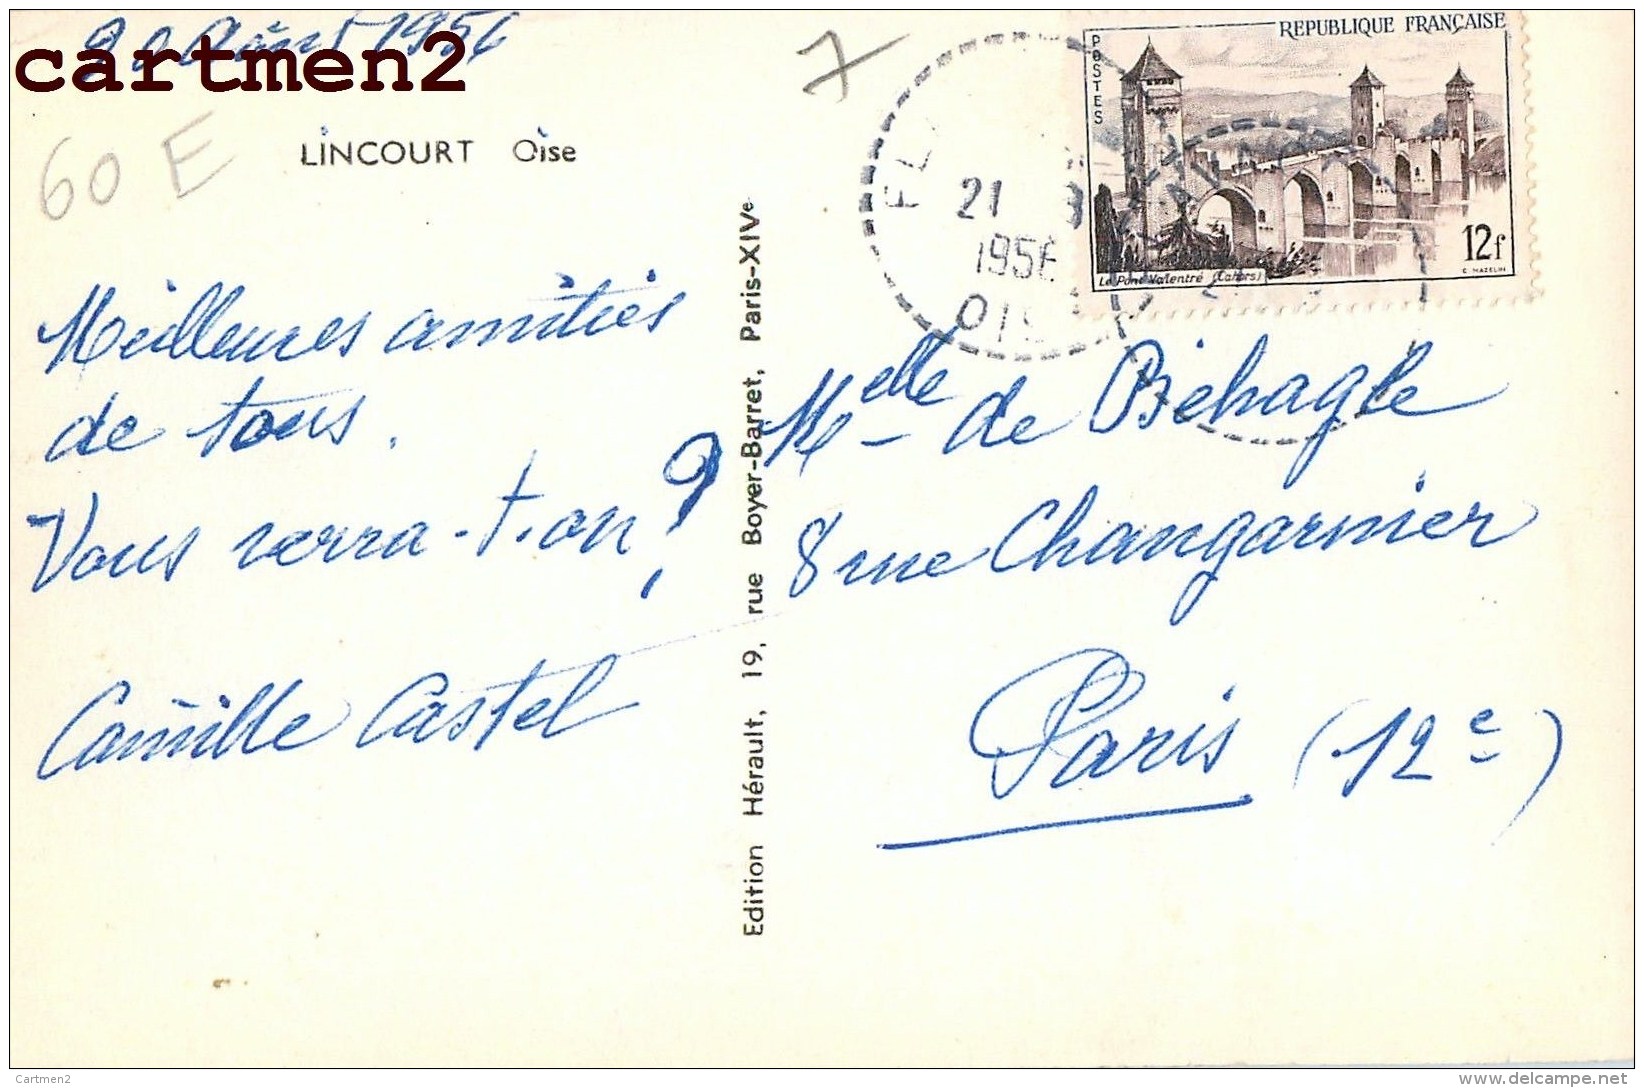 Août 1956
cartmen2
60 E
7
LINCOURT Oise
REPUBLIQUE FRANÇAISE
POSTES
12f
Le Pont Valentré (Cahors)
C. MAZELIN
21 8
1956
OISE
Meilleures amitiés
de tous.
Vous verra-t-on ?
Camille Castel
Edition Hérault, 19, rue Boyer-Barret, Paris-XIVe
Melle de Béhagle
8 rue Changarnier
Paris (12e)
Cartmen2
www.delcampe.net